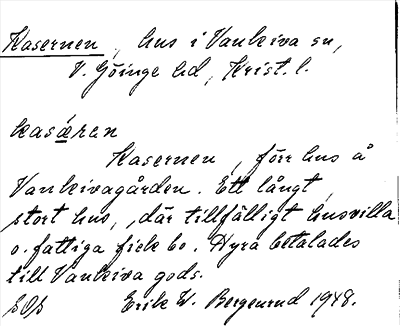 Kasernen, hus i Vankiva sn,
V. Göinge hd, Krist. l.
kasǽrən
Kasernen, förr hus å
Vankivagården. Ett långt,
stort hus, där tillfälligt husvilla
o. fattiga fick bo. Hyra betalades
till Vankiva gods.
Erik W. Bergenrud 1948.